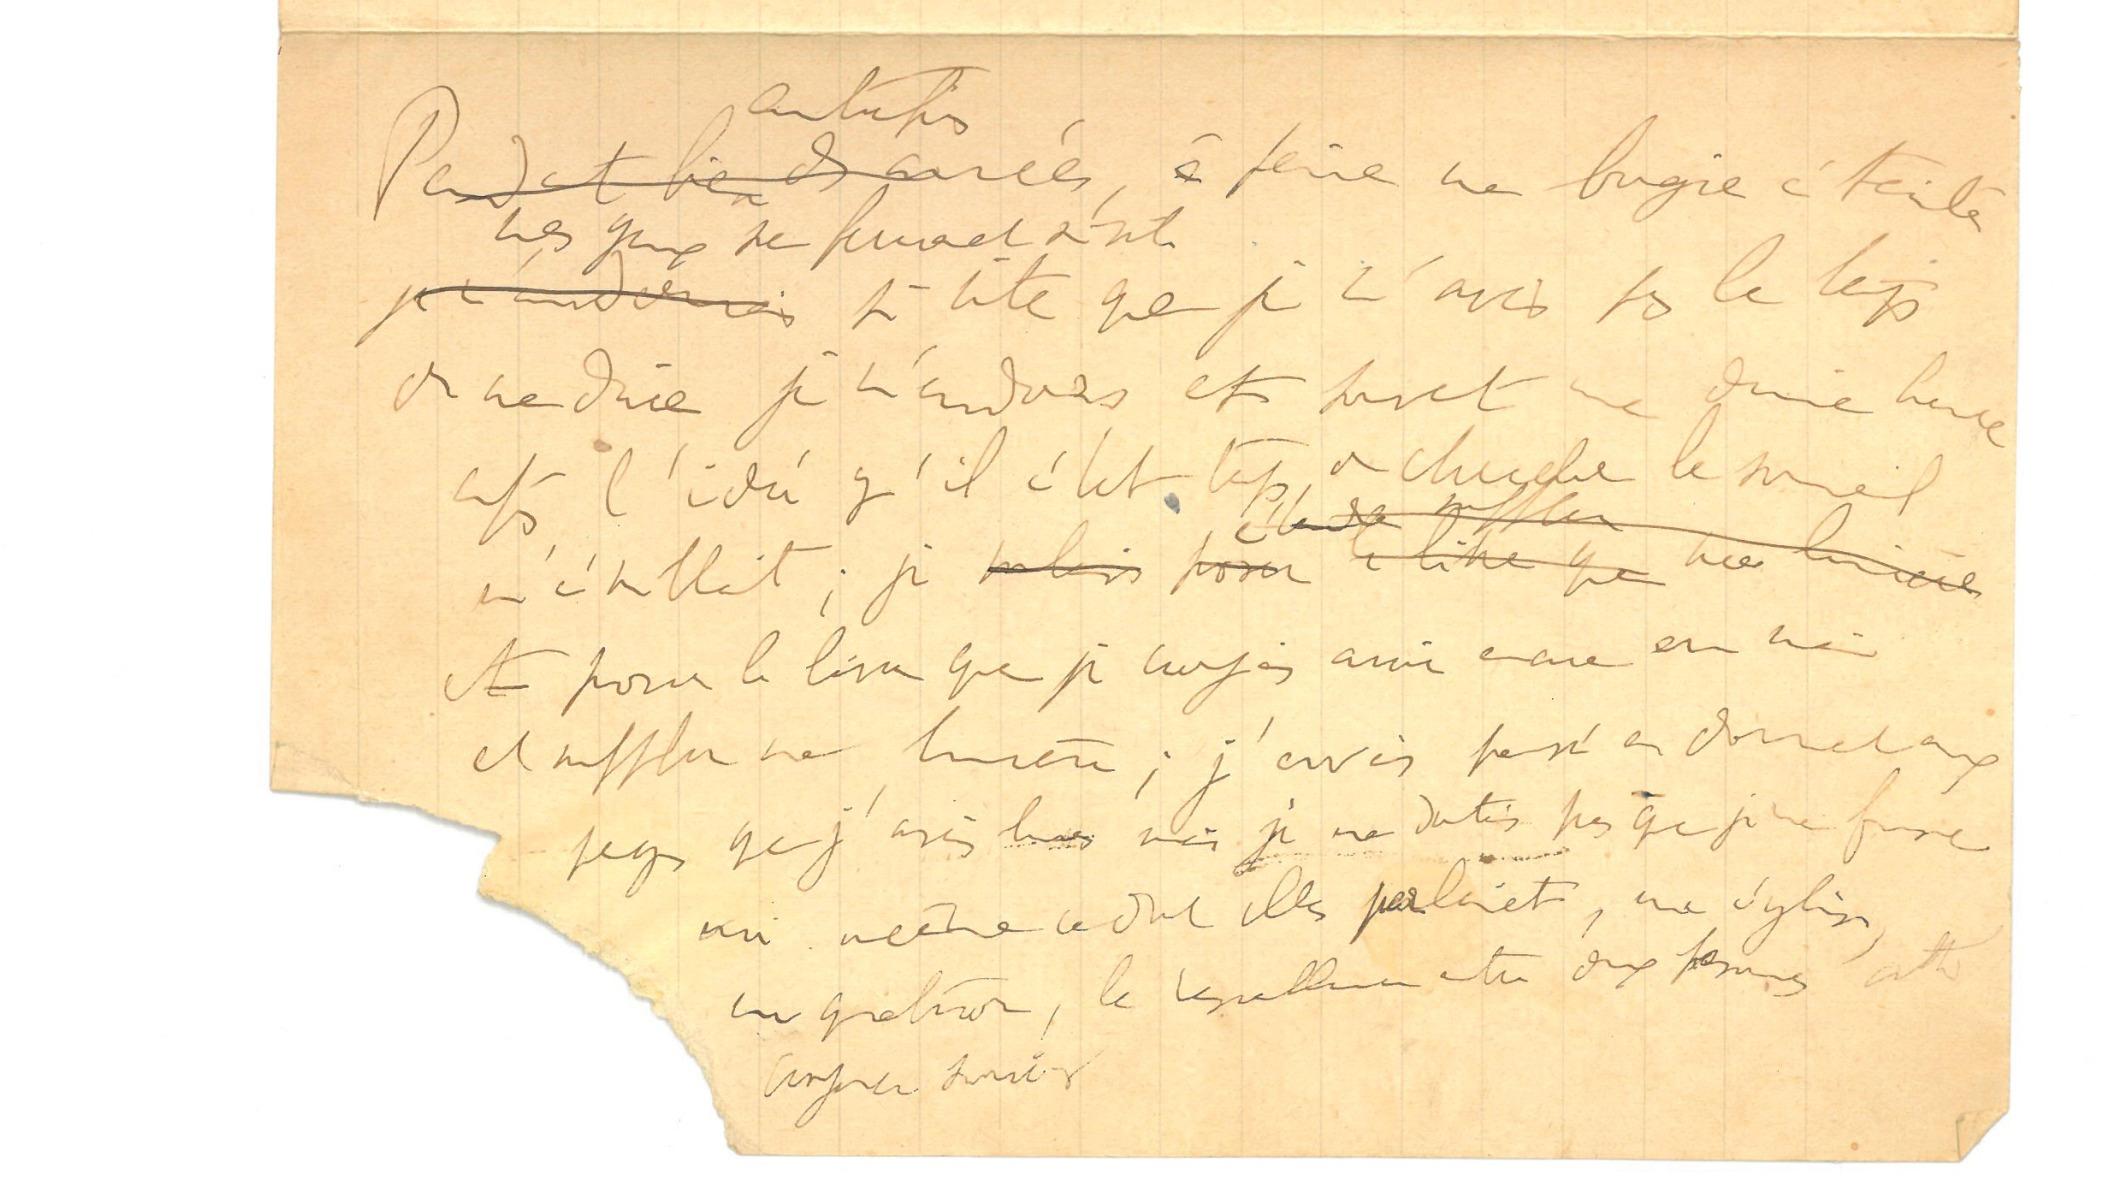 autrefois
Pendant bien des années, à peine ma bougie éteinte
mes yeux se fermaient
je m'endormais si vite que je n'avais pas le temps
de me dire je m'endors et souvent une demie heure
après l'idée qu'il était temps de chercher le sommeil
souffler
m'éveillait ; je voulais poser le livre que ma lumière
et poser le livre que je croyais avoir encore en main
et souffler ma lumière ; j'avais pensé en dormant aux
pages que j'avais lues mais je ne doutais pas que je ne fusse
moi même ce dont elles parlaient, une église,
un quatuor, la entre deux personnes cette
croyance